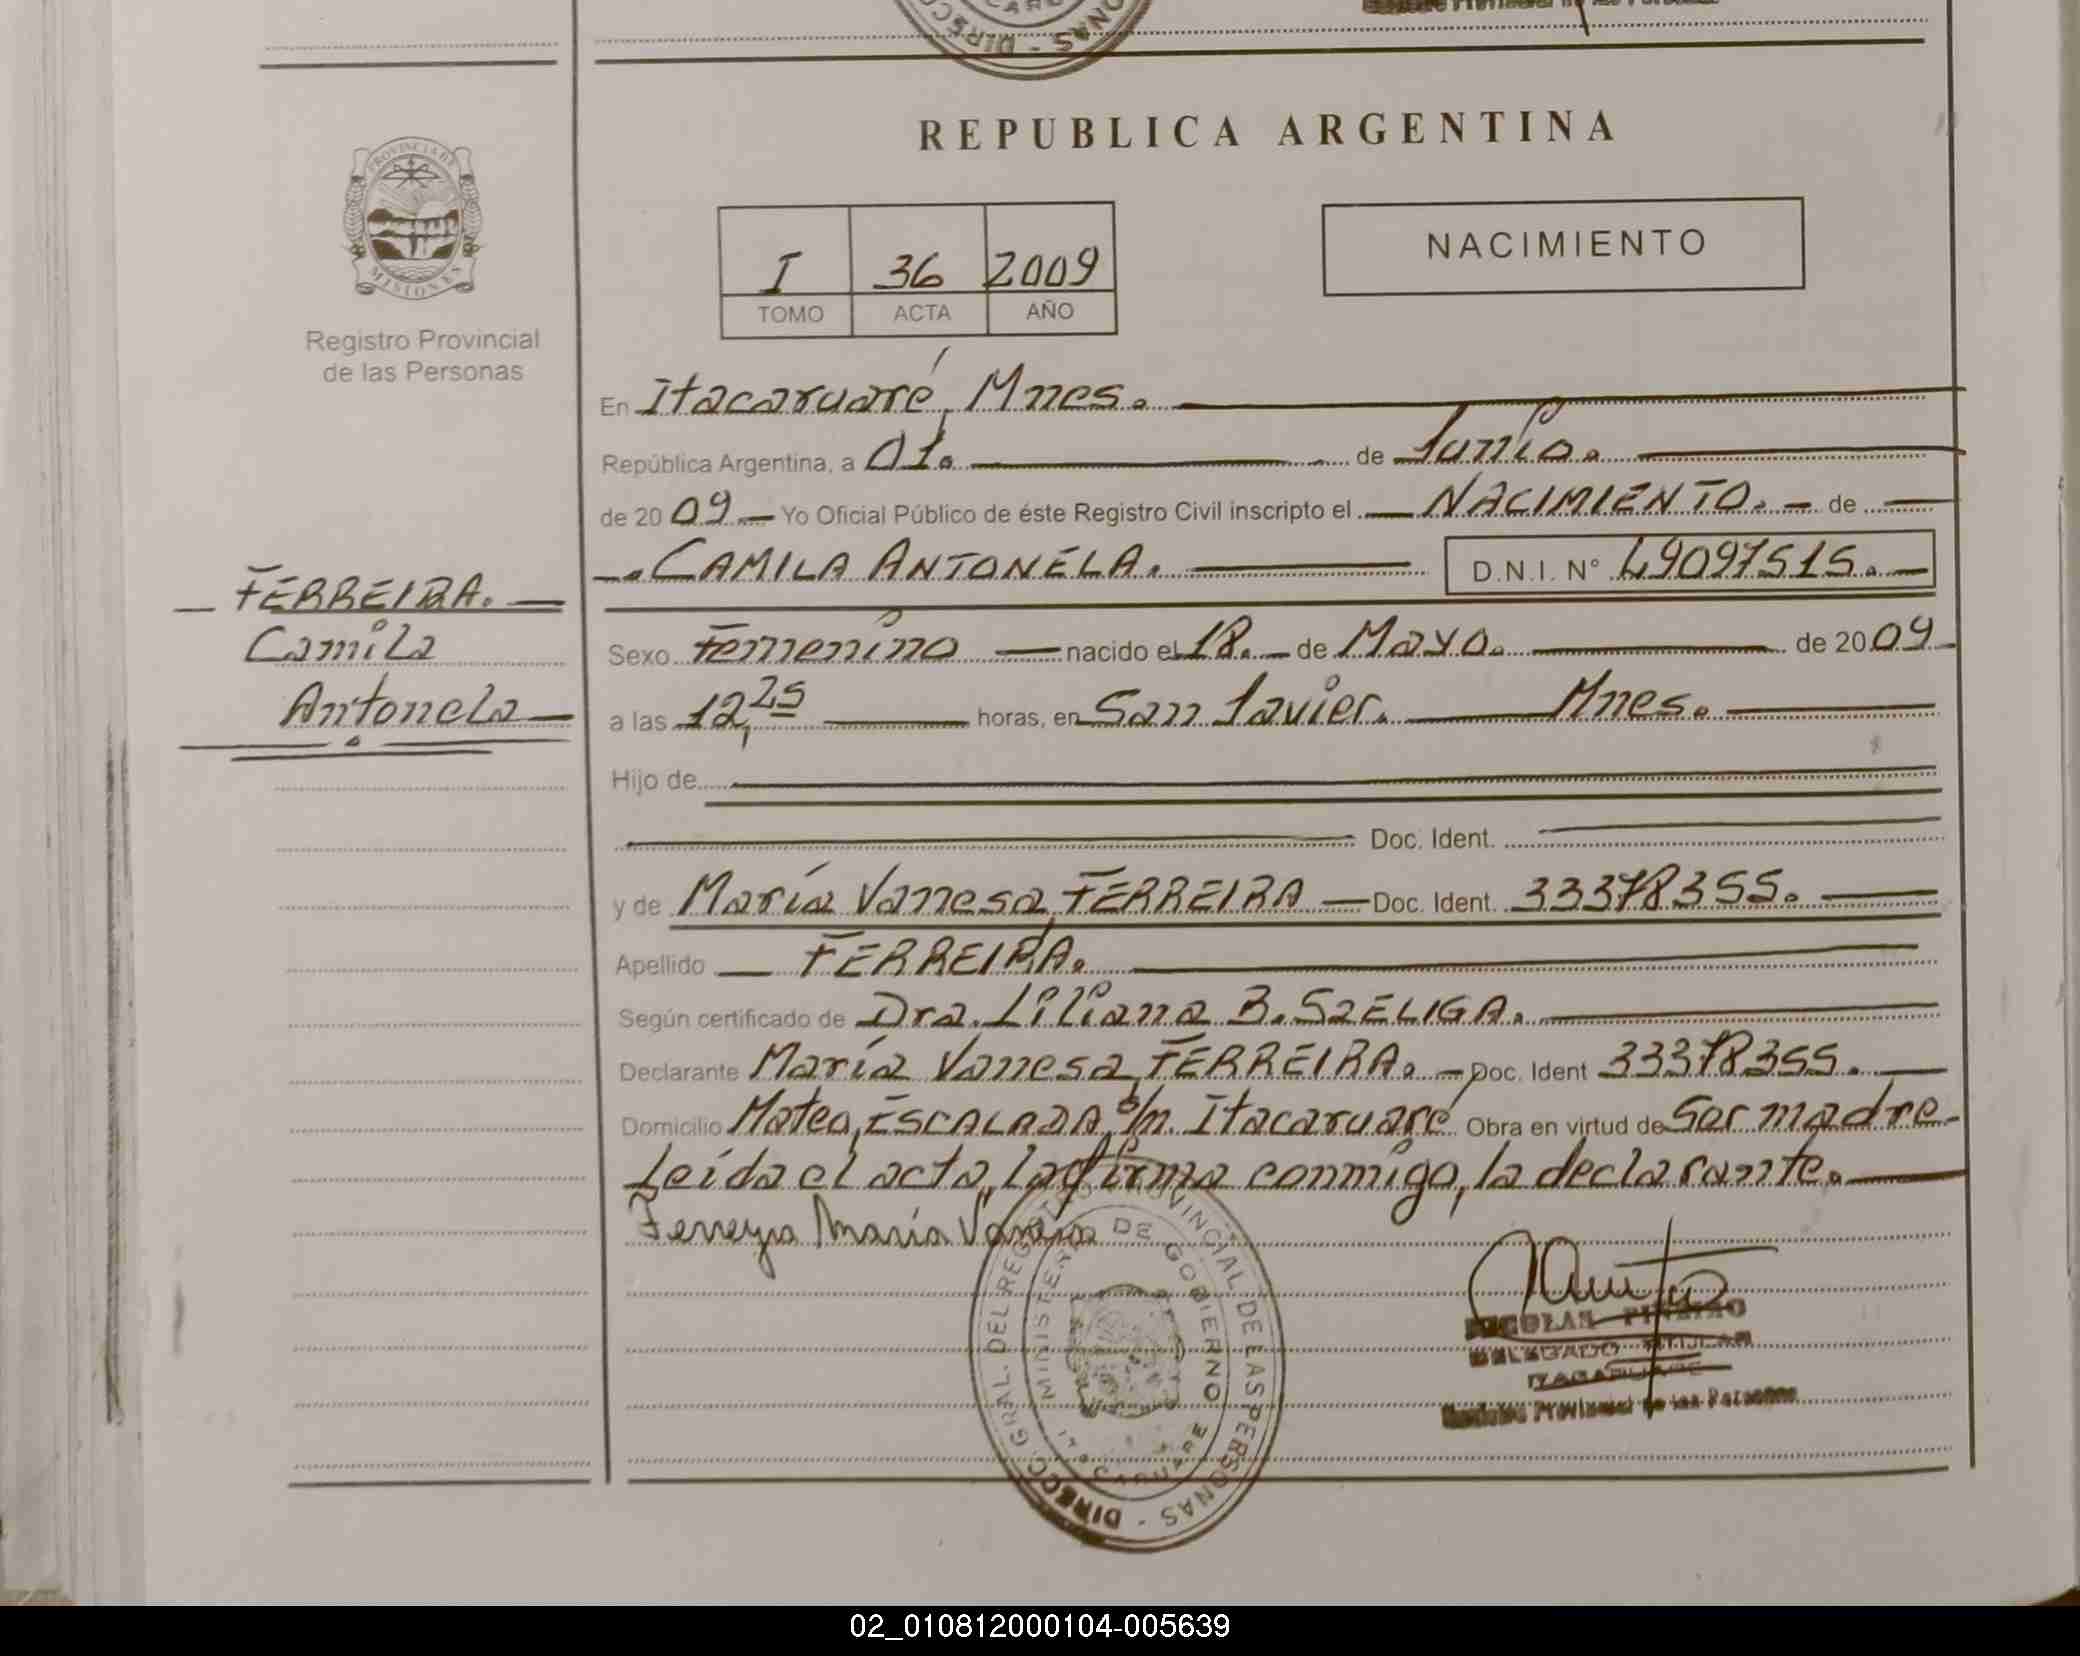 REPUBLICA ARGENTINA
PROVINCIA DE
MISIONES
Registro Provincial
de las Personas
I 36 2009
TOMO ACTA AÑO
NACIMIENTO
En Itacaruaré, Mnes.
República Argentina, a 01. de Junio.
de 2009 Yo Oficial Público de éste Registro Civil inscripto el NACIMIENTO. de
CAMILA ANTONELA. D.N.I. N° 49097515.
FERREIRA.
Camila
Antonela
Sexo Femenino nacido el 18. de Mayo. de 2009
a las 12,25 horas, en San Javier. Mnes.
Hijo de
Doc. Ident.
y de María Vanesa FERREIRA Doc. Ident. 33378355.
Apellido FERREIRA.
Según certificado de Dra. Liliana B. SZELIGA.
Declarante María Vanesa FERREIRA. Doc. Ident 33378355.
Domicilio Mateo ESCALADA s/n. Itacaruaré Obra en virtud de Ser madre
Leída el acta, la firma conmigo, la declarante.
Ferreyra María Vanesa
DIRECC. GRAL. DEL REGISTRO PROVINCIAL DE LAS PERSONAS -
MINISTERIO DE GOBIERNO
ITACARUARE
NICOLAS PIÑEIRO
DELEGADO TITULAR
ITACARUARE
Registro Provincial de las Personas
02_010812000104-005639